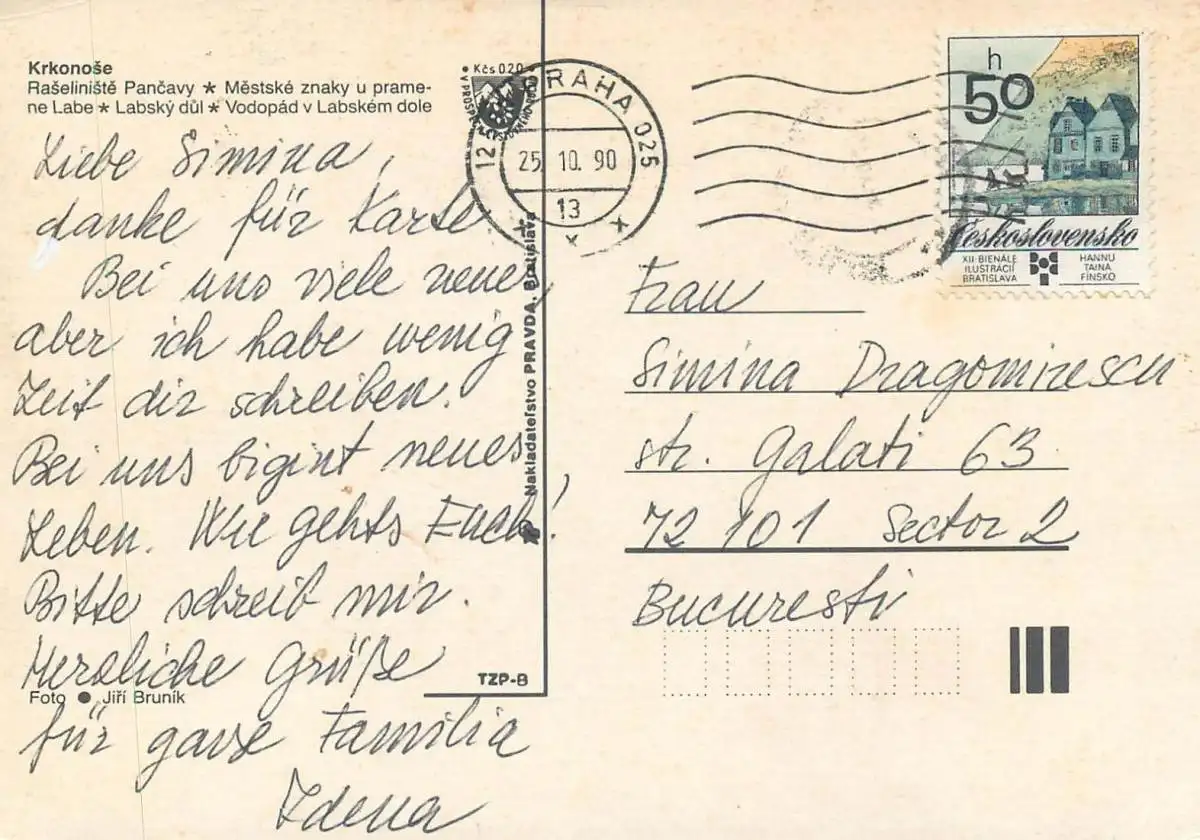 Krkonoše
Rašeliniště Pančavy ★ Městské znaky u prame-
ne Labe ★ Labský důl ★ Vodopád v Labském dole
Liebe Simina,
danke für Karte
Bei uns viele neue,
aber ich habe wenig
Zeit dir schreiben.
Bei uns bigint neues
Leben. Wie gehts Euch!
Bitte schreib mir.
Herzliche Grüße
für ganze Familia
Zdena
Foto ● Jiří Bruník
Kčs 020
PRAHA 025
12
25.10.90
13
Nakladateľstvo PRAVDA, Bratislava
TZP-B
h
50
Československo
XII·BIENÁLE
ILUSTRÁCIÍ
BRATISLAVA
HANNU
TAINA
FÍNSKO
Frau
Simina Dragomirescu
str. Galati 63
72 101 Sector 2
Bucuresti